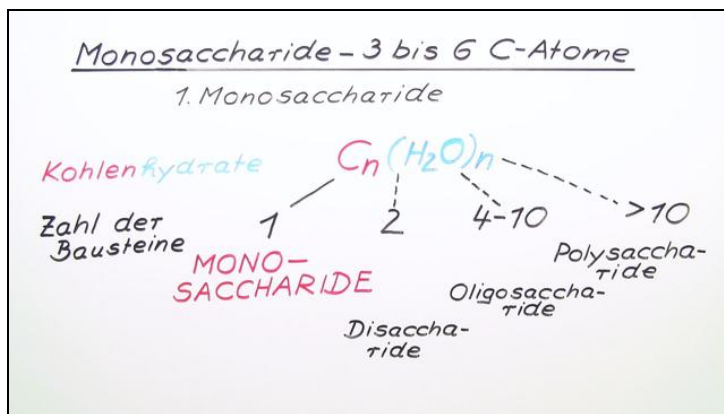 Monosaccharide – 3 bis 6 C-Atome
1. Monosaccharide
Kohlenhydrate
Cn(H2O)n
Zahl der
Bausteine
1
2
4-10
>10
MONO-
SACCHARIDE
Disaccha-
ride
Oligosaccha-
ride
Polysaccha-
ride